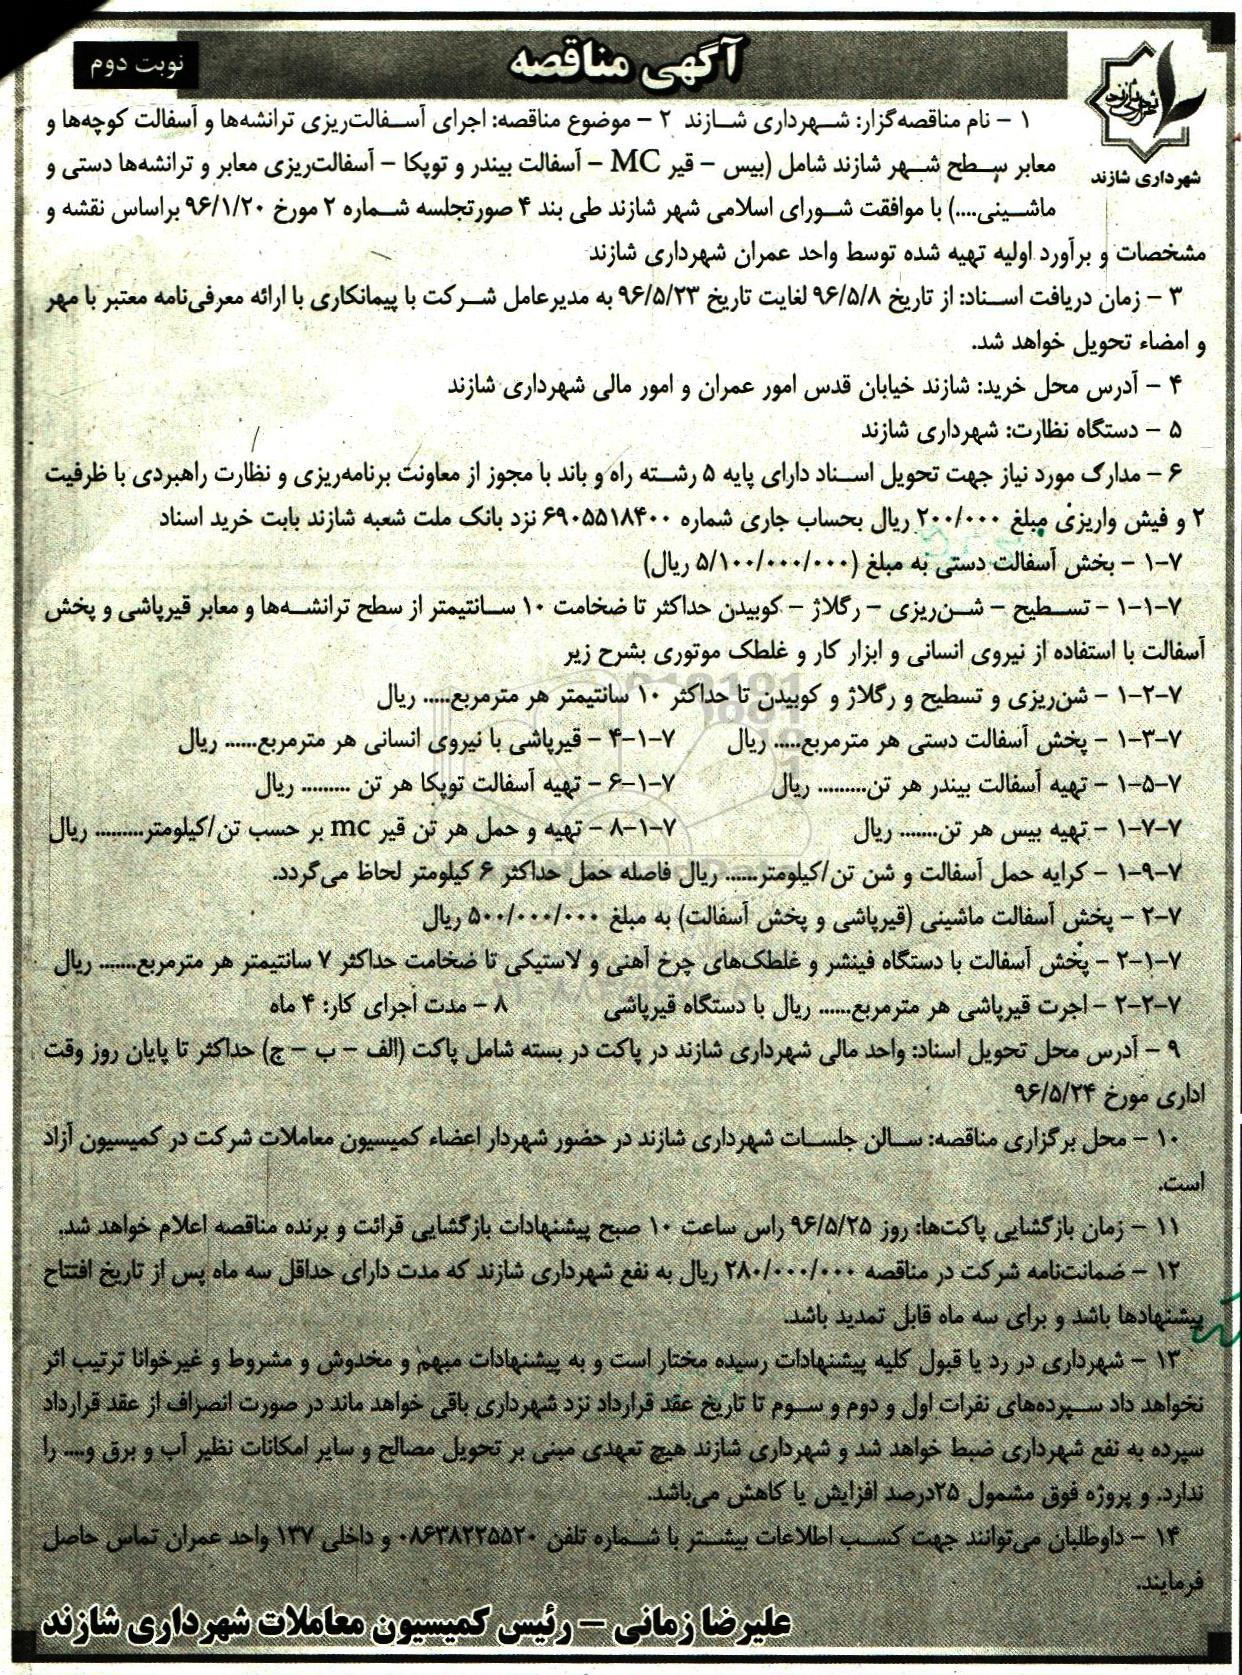 آگهی مناقصه
نوبت دوم
شهرداری شازند
۱ – نام مناقصه‌گزار: شهرداری شازند ۲ – موضوع مناقصه: اجرای آسفالت‌ریزی ترانشه‌ها و آسفالت کوچه‌ها و
معابر سطح شهر شازند شامل (بیس – قیر MC – آسفالت بیندر و توپکا – آسفالت‌ریزی معابر و ترانشه‌ها دستی و
ماشینی....) با موافقت شورای اسلامی شهر شازند طی بند ۴ صورتجلسه شماره ۲ مورخ ۹۶/۱/۲۰ براساس نقشه و
مشخصات و برآورد اولیه تهیه شده توسط واحد عمران شهرداری شازند
۳ – زمان دریافت اسناد: از تاریخ ۹۶/۵/۸ لغایت تاریخ ۹۶/۵/۲۳ به مدیرعامل شرکت با پیمانکاری با ارائه معرفی‌نامه معتبر با مهر
و امضاء تحویل خواهد شد.
۴ – آدرس محل خرید: شازند خیابان قدس امور عمران و امور مالی شهرداری شازند
۵ – دستگاه نظارت: شهرداری شازند
۶ – مدارک مورد نیاز جهت تحویل اسناد دارای پایه ۵ رشته راه و باند با مجوز از معاونت برنامه‌ریزی و نظارت راهبردی با ظرفیت
۲ و فیش واریزی مبلغ ۲۰۰/۰۰۰ ریال بحساب جاری شماره ۶۹۰۵۵۱۸۴۰۰ نزد بانک ملت شعبه شازند بابت خرید اسناد
۱-۷ – بخش آسفالت دستی به مبلغ (۵/۱۰۰/۰۰۰/۰۰۰ ریال)
۱-۱-۷ – تسطیح – شن‌ریزی – رگلاژ – کوبیدن حداکثر تا ضخامت ۱۰ سانتیمتر از سطح ترانشه‌ها و معابر قیرپاشی و پخش
آسفالت با استفاده از نیروی انسانی و ابزار کار و غلطک موتوری بشرح زیر
۱-۲-۷ – شن‌ریزی و تسطیح و رگلاژ و کوبیدن تا حداکثر ۱۰ سانتیمتر هر مترمربع..... ریال
۱-۳-۷ – پخش آسفالت دستی هر مترمربع..... ریال ۴-۱-۷ – قیرپاشی با نیروی انسانی هر مترمربع...... ریال
۱-۵-۷ – تهیه آسفالت بیندر هر تن......... ریال ۶-۱-۷ – تهیه آسفالت توپکا هر تن ......... ریال
۱-۷-۷ – تهیه بیس هر تن....... ریال ۸-۱-۷ – تهیه و حمل هر تن قیر mc بر حسب تن/کیلومتر......... ریال
۱-۹-۷ – کرایه حمل آسفالت و شن تن/کیلومتر...... ریال فاصله حمل حداکثر ۶ کیلومتر لحاظ می‌گردد.
۲-۷ – پخش آسفالت ماشینی (قیرپاشی و پخش آسفالت) به مبلغ ۵۰۰/۰۰۰/۰۰۰ ریال
۲-۱-۷ – پخش آسفالت با دستگاه فینشر و غلطک‌های چرخ آهنی و لاستیکی تا ضخامت حداکثر ۷ سانتیمتر هر مترمربع....... ریال
۲-۲-۷ – اجرت قیرپاشی هر مترمربع...... ریال با دستگاه قیرپاشی ۸ – مدت اجرای کار: ۴ ماه
۹ – آدرس محل تحویل اسناد: واحد مالی شهرداری شازند در پاکت در بسته شامل پاکت (الف – ب – ج) حداکثر تا پایان روز وقت
اداری مورخ ۹۶/۵/۲۴
۱۰ – محل برگزاری مناقصه: سالن جلسات شهرداری شازند در حضور شهردار اعضاء کمیسیون معاملات شرکت در کمیسیون آزاد
است.
۱۱ – زمان بازگشایی پاکت‌ها: روز ۹۶/۵/۲۵ راس ساعت ۱۰ صبح پیشنهادات بازگشایی قرائت و برنده مناقصه اعلام خواهد شد.
۱۲ – ضمانت‌نامه شرکت در مناقصه ۲۸۰/۰۰۰/۰۰۰ ریال به نفع شهرداری شازند که مدت دارای حداقل سه ماه پس از تاریخ افتتاح
پیشنهادها باشد و برای سه ماه قابل تمدید باشد.
۱۳ – شهرداری در رد یا قبول کلیه پیشنهادات رسیده مختار است و به پیشنهادات مبهم و مخدوش و مشروط و غیرخوانا ترتیب اثر
نخواهد داد سپرده‌های نفرات اول و دوم و سوم تا تاریخ عقد قرارداد نزد شهرداری باقی خواهد ماند در صورت انصراف از عقد قرارداد
سپرده به نفع شهرداری ضبط خواهد شد و شهرداری شازند هیچ تعهدی مبنی بر تحویل مصالح و سایر امکانات نظیر آب و برق و.... را
ندارد. و پروژه فوق مشمول ۲۵درصد افزایش یا کاهش می‌باشد.
۱۴ – داوطلبان می‌توانند جهت کسب اطلاعات بیشتر با شماره تلفن ۰۸۶۳۸۲۲۵۵۲۰ و داخلی ۱۳۷ واحد عمران تماس حاصل
فرمایند.
علیرضا زمانی – رئیس کمیسیون معاملات شهرداری شازند